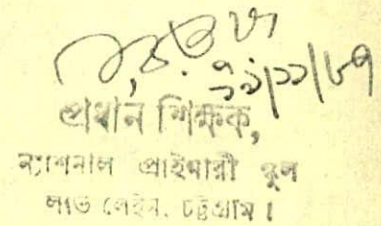 ২১/১১/৮৭
প্রধান শিক্ষক,
ন্যাশনাল প্রাইমারী স্কুল
লাভ লেইন, চট্টগ্রাম।